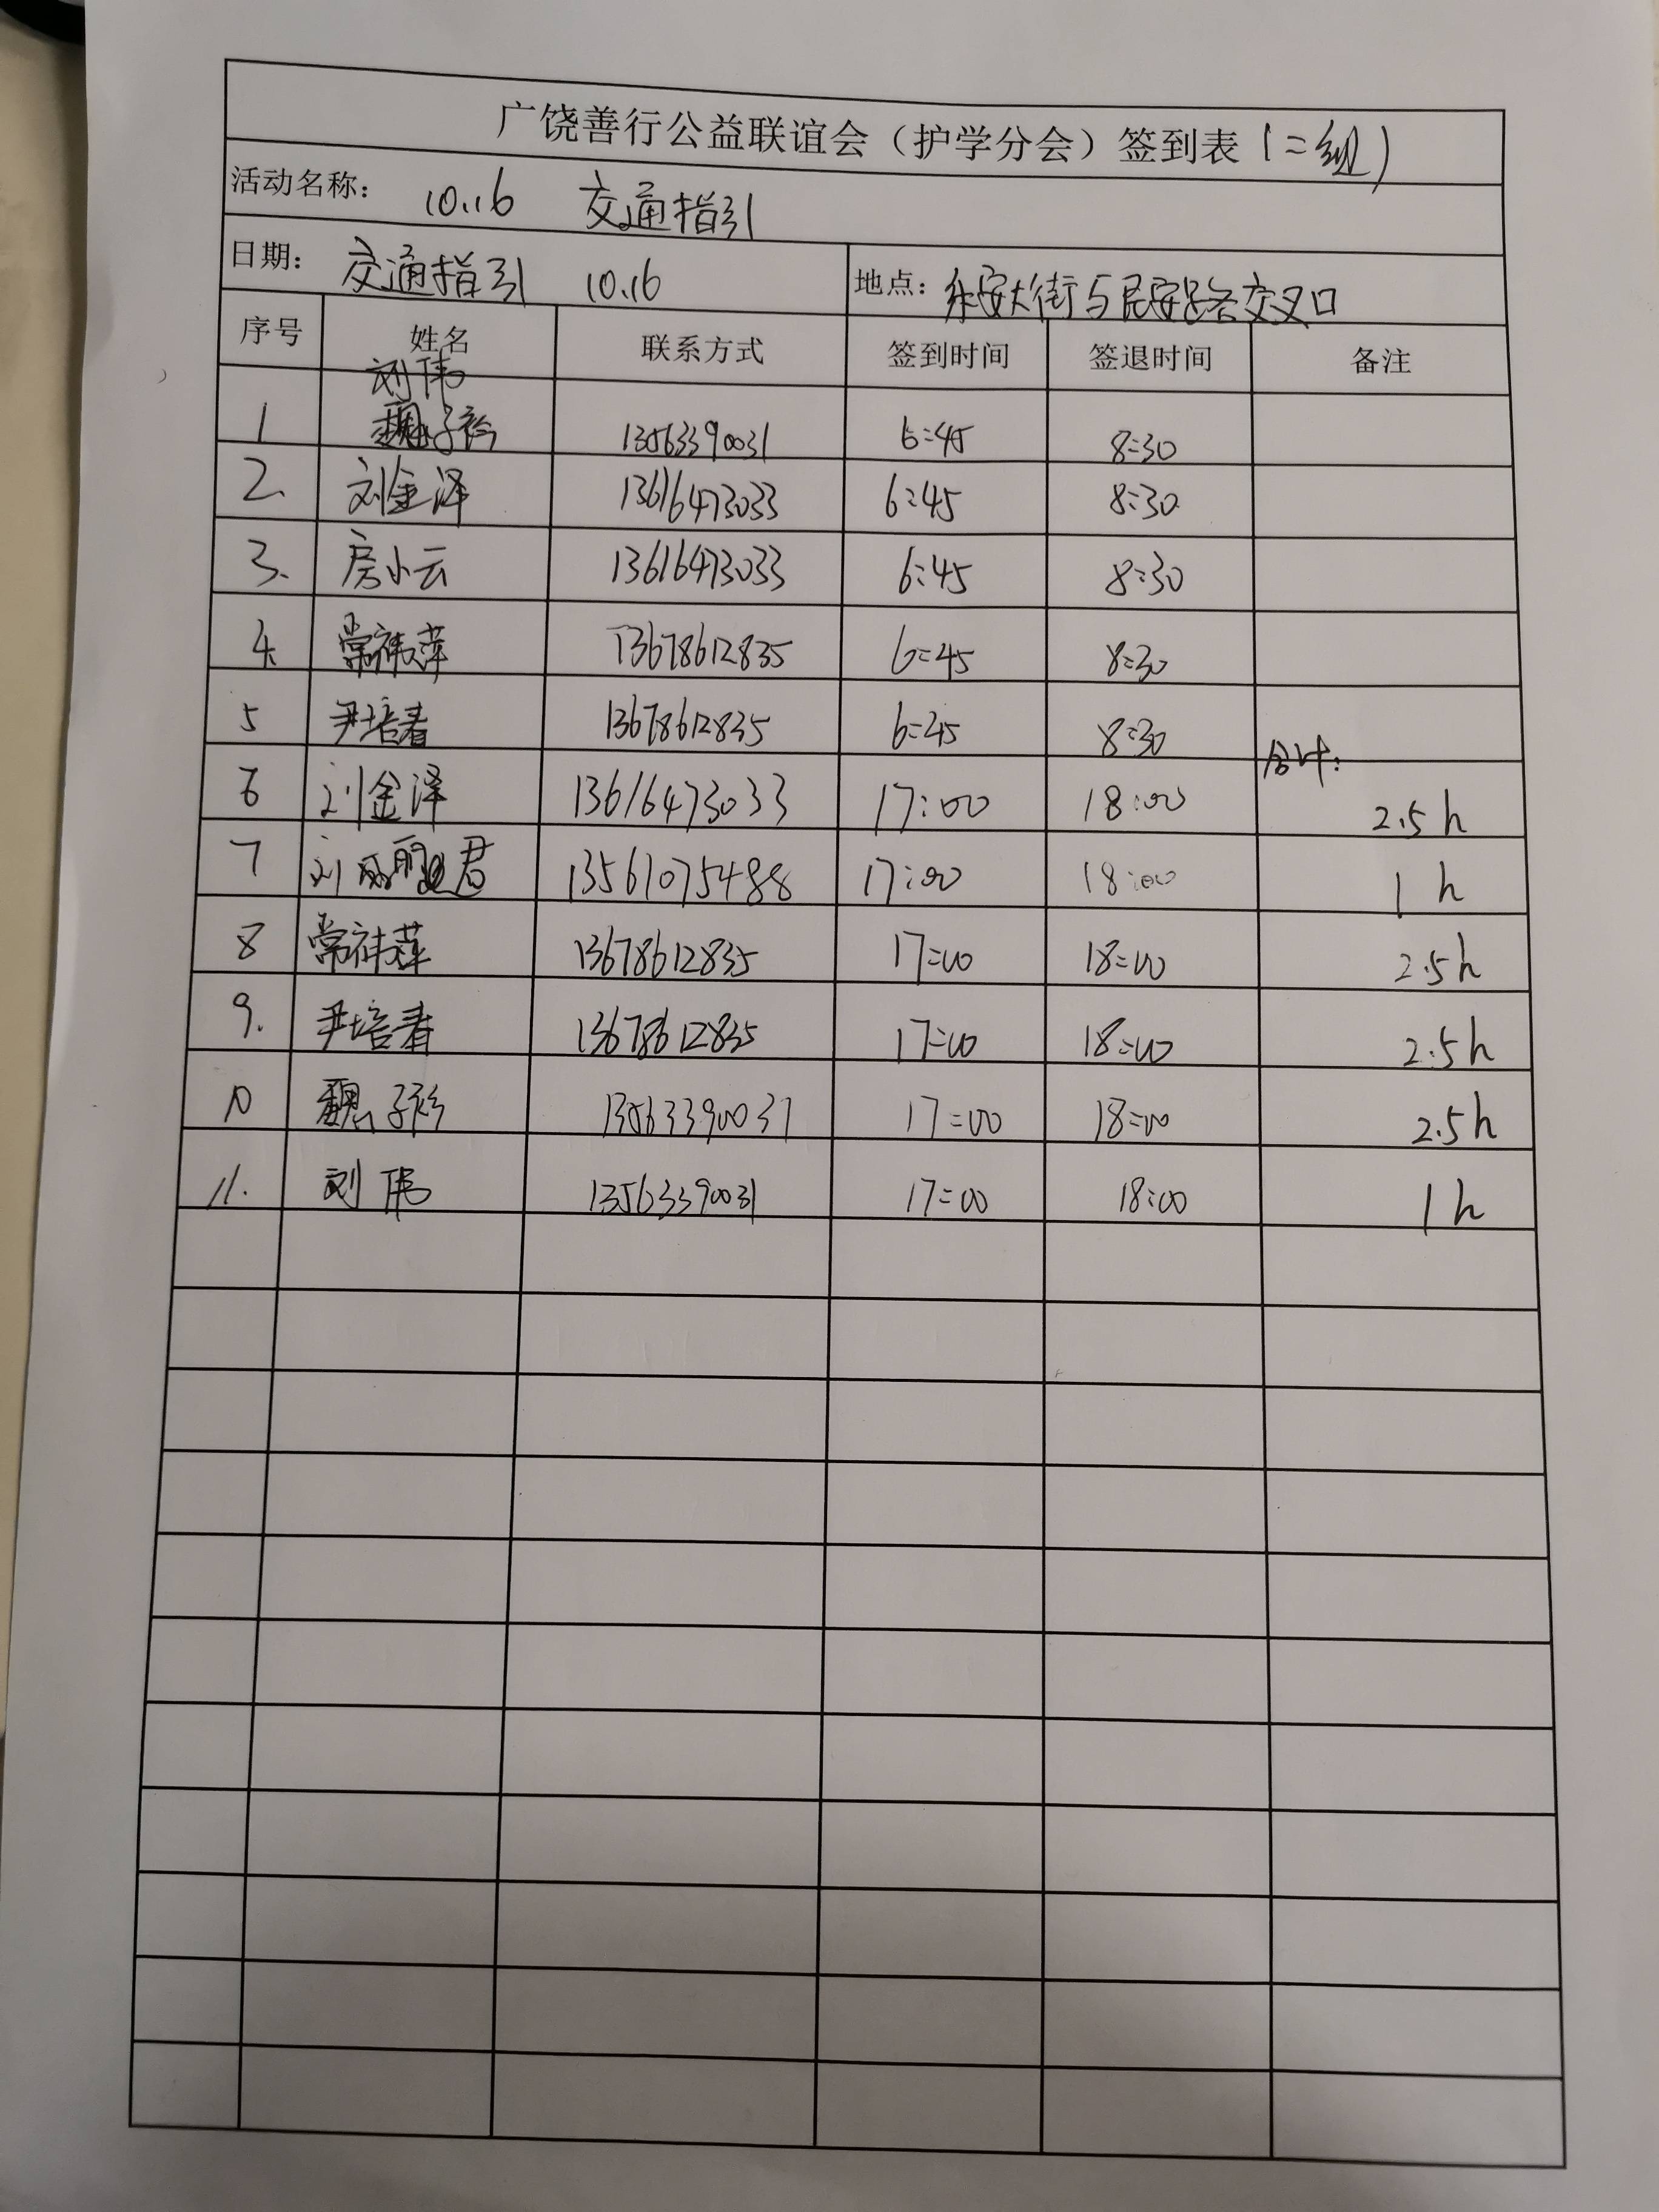 广饶善行公益联谊会（护学分会）签到表（二组）
活动名称： 10.16 交通指引
日期： 交通指引 10.16 地点：永安大街与民安路交叉口
序号 姓名 联系方式 签到时间 签退时间 备注
刘伟
1 魏子衿 13563390031 6:45 8:30
2. 刘金泽 13616473033 6:45 8:30
3. 房小云 13616473033 6:45 8:30
4. 常祎萍 13678612835 6:45 8:30
5 尹培春 13678612835 6:45 8:30
合计：
6 刘金泽 13616473033 17:00 18:00 2.5h
7 刘丽君 13561075488 17:00 18:00 1h
8 常祎萍 13678612835 17:00 18:00 2.5h
9. 尹培春 13678612835 17:00 18:00 2.5h
10 魏子衿 13563390031 17:00 18:00 2.5h
11. 刘伟 13563390031 17:00 18:00 1h